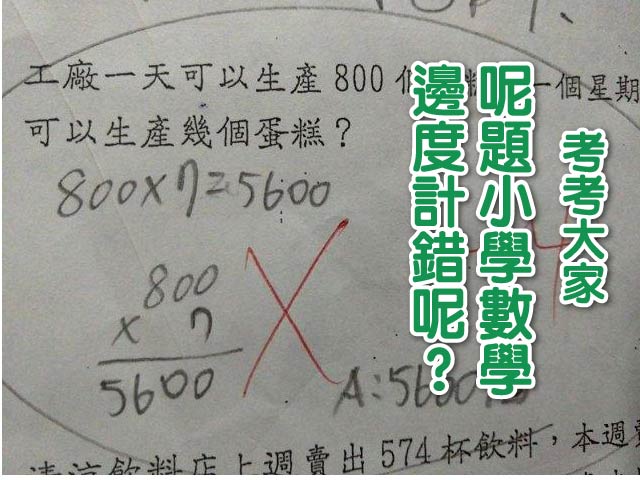 工廠一天可以生產800個 一個星期
可以生產幾個蛋糕？
800×7=5600
800
× 7
5600
A:5600
清涼飲料店上週賣出574杯飲料，本週賣
考考大家
呢題小學數學
邊度計錯呢？